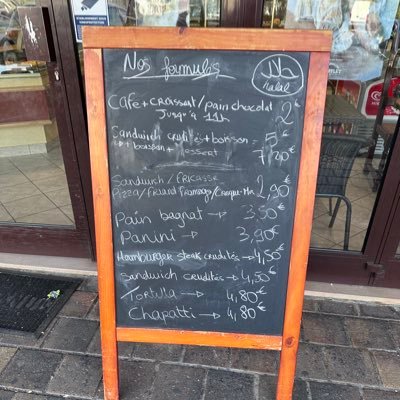 Nos formules
حلال
halal
Café + CROISSANT / pain chocolat 2€
Jusqu'à 11h
Sandwich crudités + boisson = 5€
+ boisson + Dessert 7,20€
Sandwich / FRICASSE
Pizza / friand fromage / Croque-Mr 2,90€
Pain bagnat → 3,50€
Panini → 3,90€
Hamburger steak crudités → 4,50€
Sandwich crudités → 4,50€
Tortilla → 4,80€
Chapatti → 4,80€